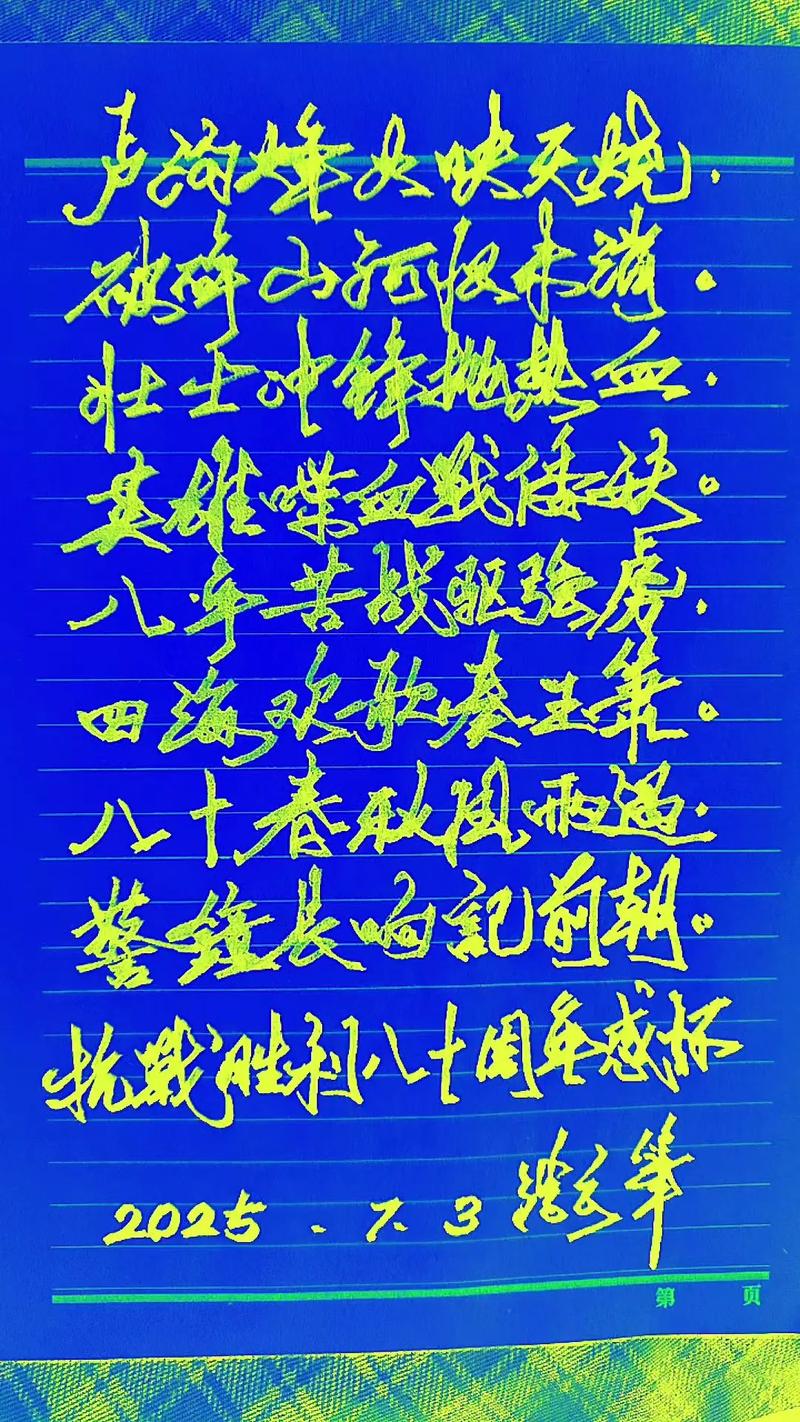 卢沟烽火映天烧.
破碎山河恨未消。
壮士冲锋抛热血.
英雄喋血戮倭妖。
八年苦战驱强虏.
四海欢歌奏玉箫。
八十春秋风雨过.
警鐘長响記前朝。
抗戰胜利八十周年感怀
2025.7.3
第 页